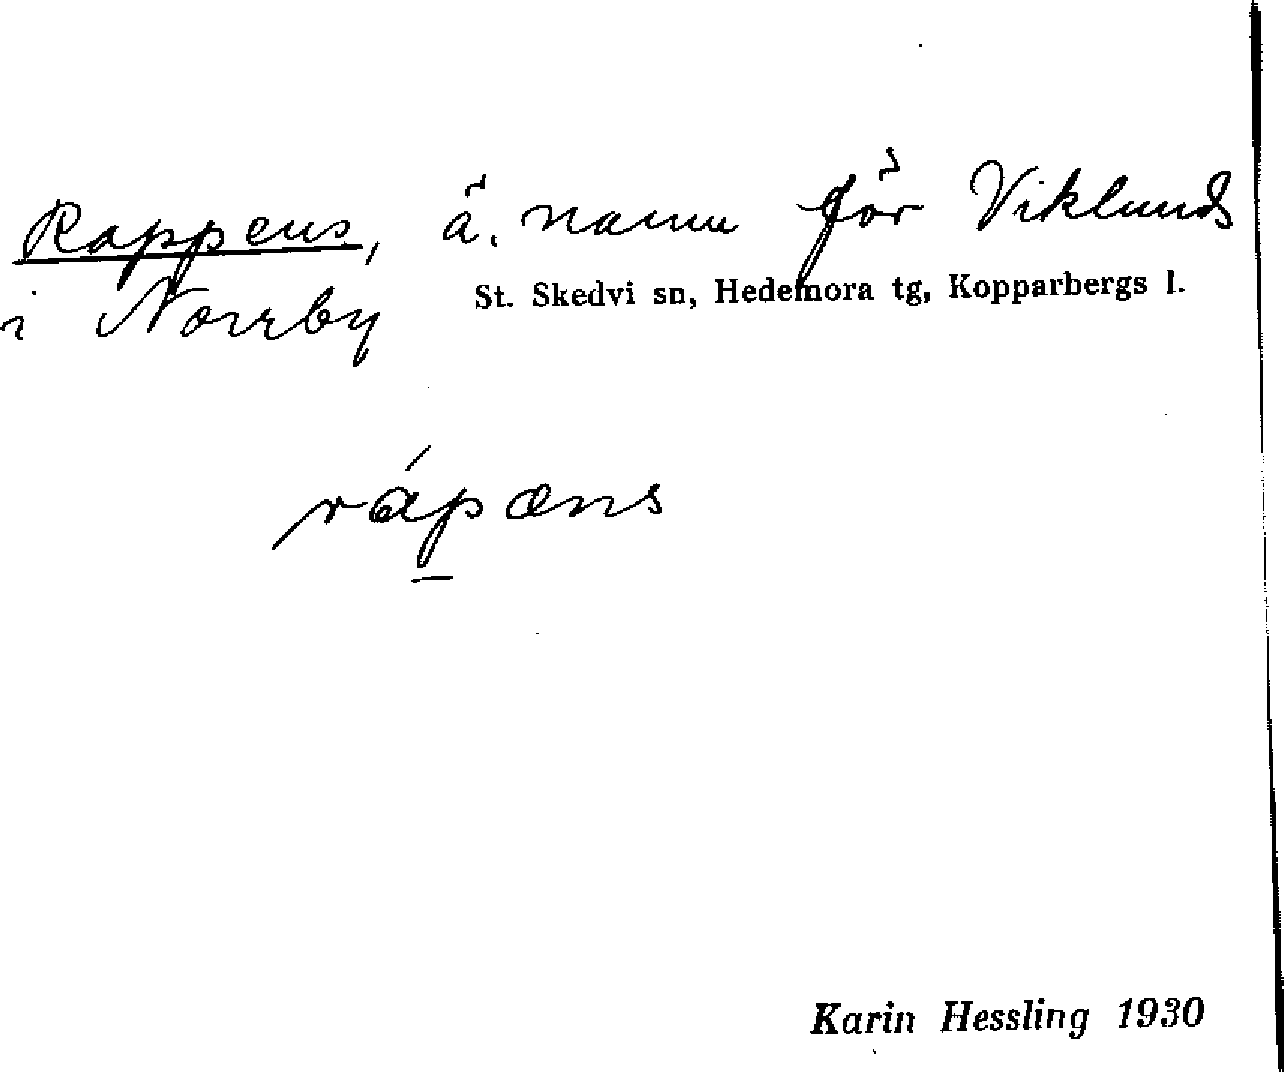 Rappens, ä. namn för Viklunds
St. Skedvi sn, Hedemora tg, Kopparbergs l.
i Norrby
ráp̱æns
Karin Hessling 1930